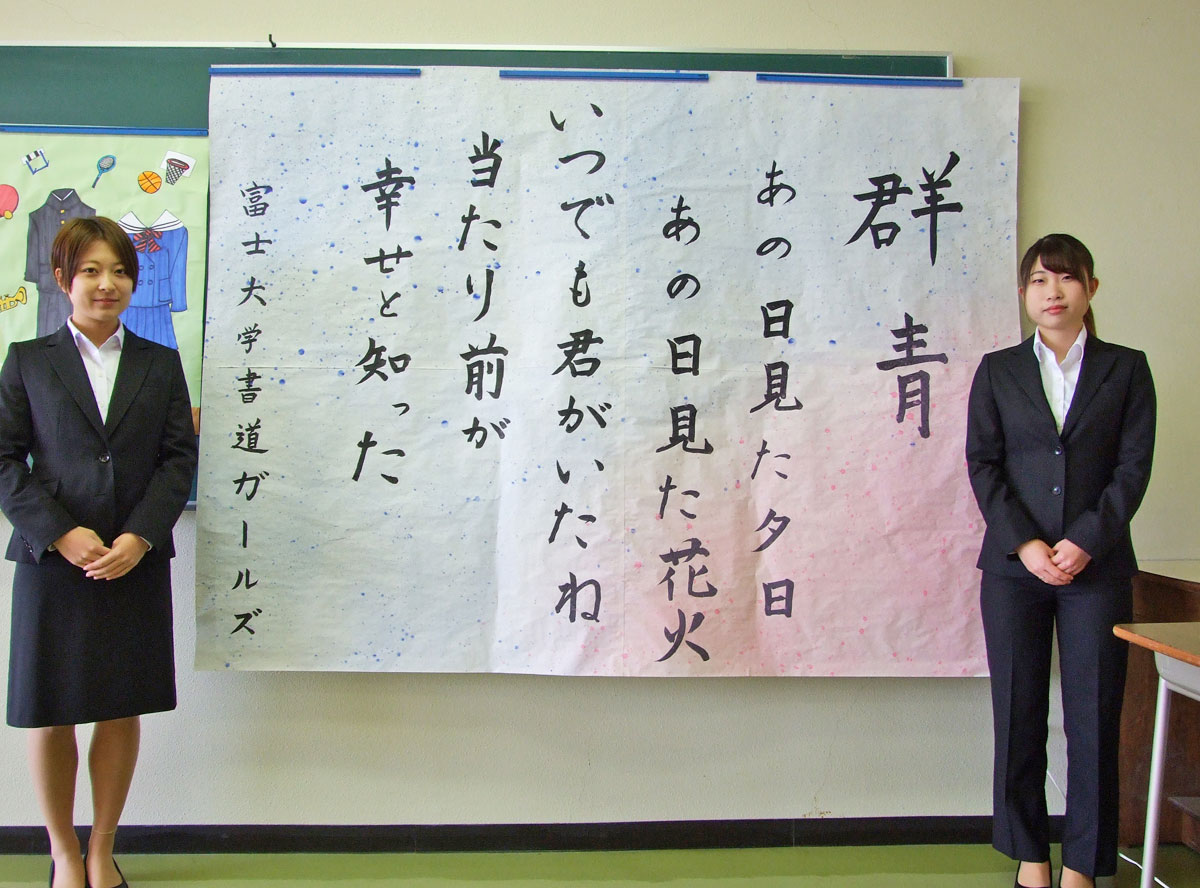 群青
あの日見た夕日
あの日見た花火
いつでも君がいたね
当たり前が
幸せと知った
富士大学書道ガールズ